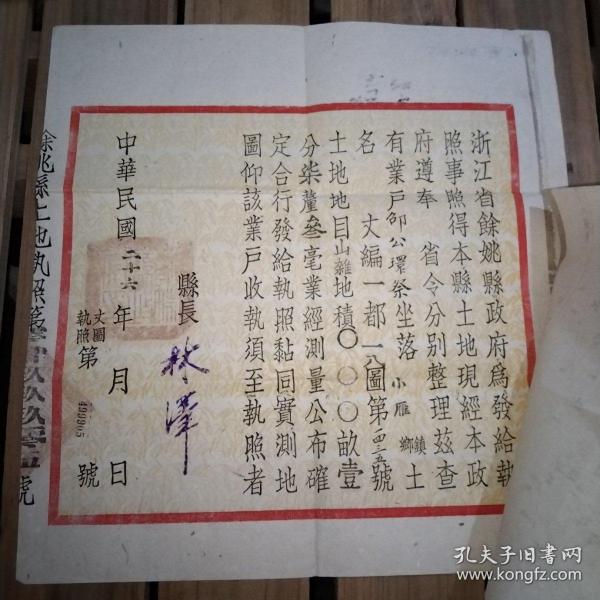 浙江省餘姚縣政府爲發給執
照事照得本縣土地現經本政
府遵奉 省令分別整理茲查
有業戶邵公環祭坐落小雁鄉鎮土
名 丈編一都一八圖第 號
土地地目山雜地積〇〇〇畝壹
分柒釐叄毫業經測量公布確
定合行發給執照黏同實測地
圖仰該業戶收執須至執照者
縣長 林澤
中華民國二十六年 月 日
丈圖執照第 號
餘姚縣土地執照第 號
孔夫子旧书网
www.kongfz.com